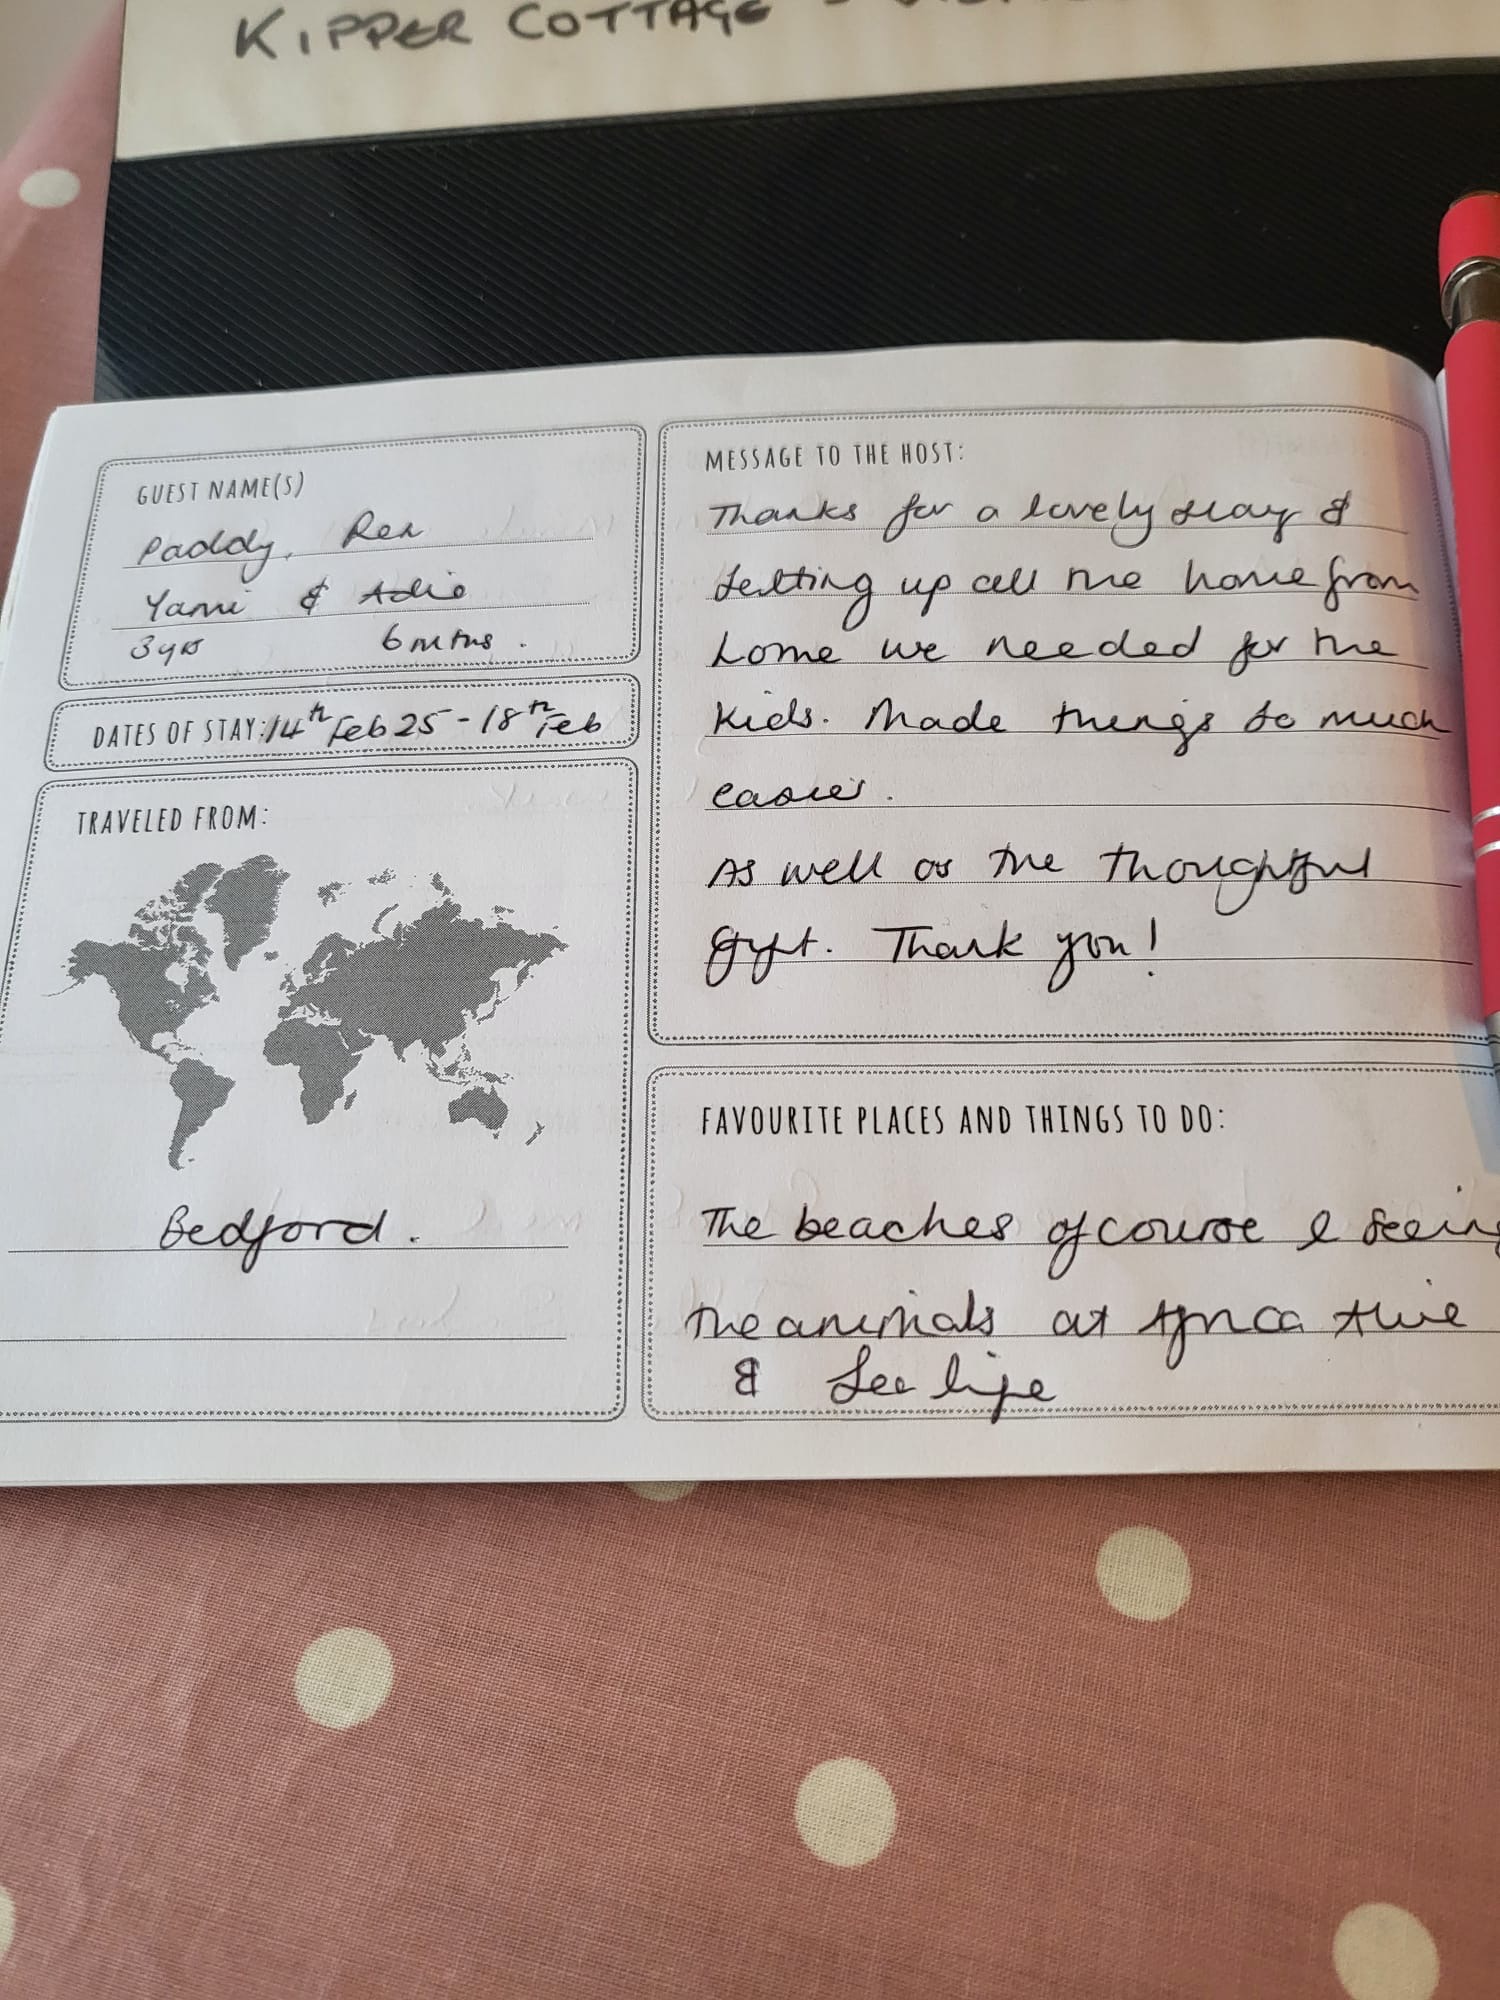 KIPPER COTTAGE -
GUEST NAME(S)
Paddy, Rex
Yami & Adie
3yrs 6mths.
DATES OF STAY: 14th Feb 25 - 18th Feb
TRAVELED FROM:
Bedford.
MESSAGE TO THE HOST:
Thanks for a lovely stay &
setting up all the home from
home we needed for the
kids. Made things so much
easier.
As well as the thoughtful
gift. Thank you!
FAVOURITE PLACES AND THINGS TO DO:
The beaches of course & seeing
the animals at Africa Alive
& Sea life